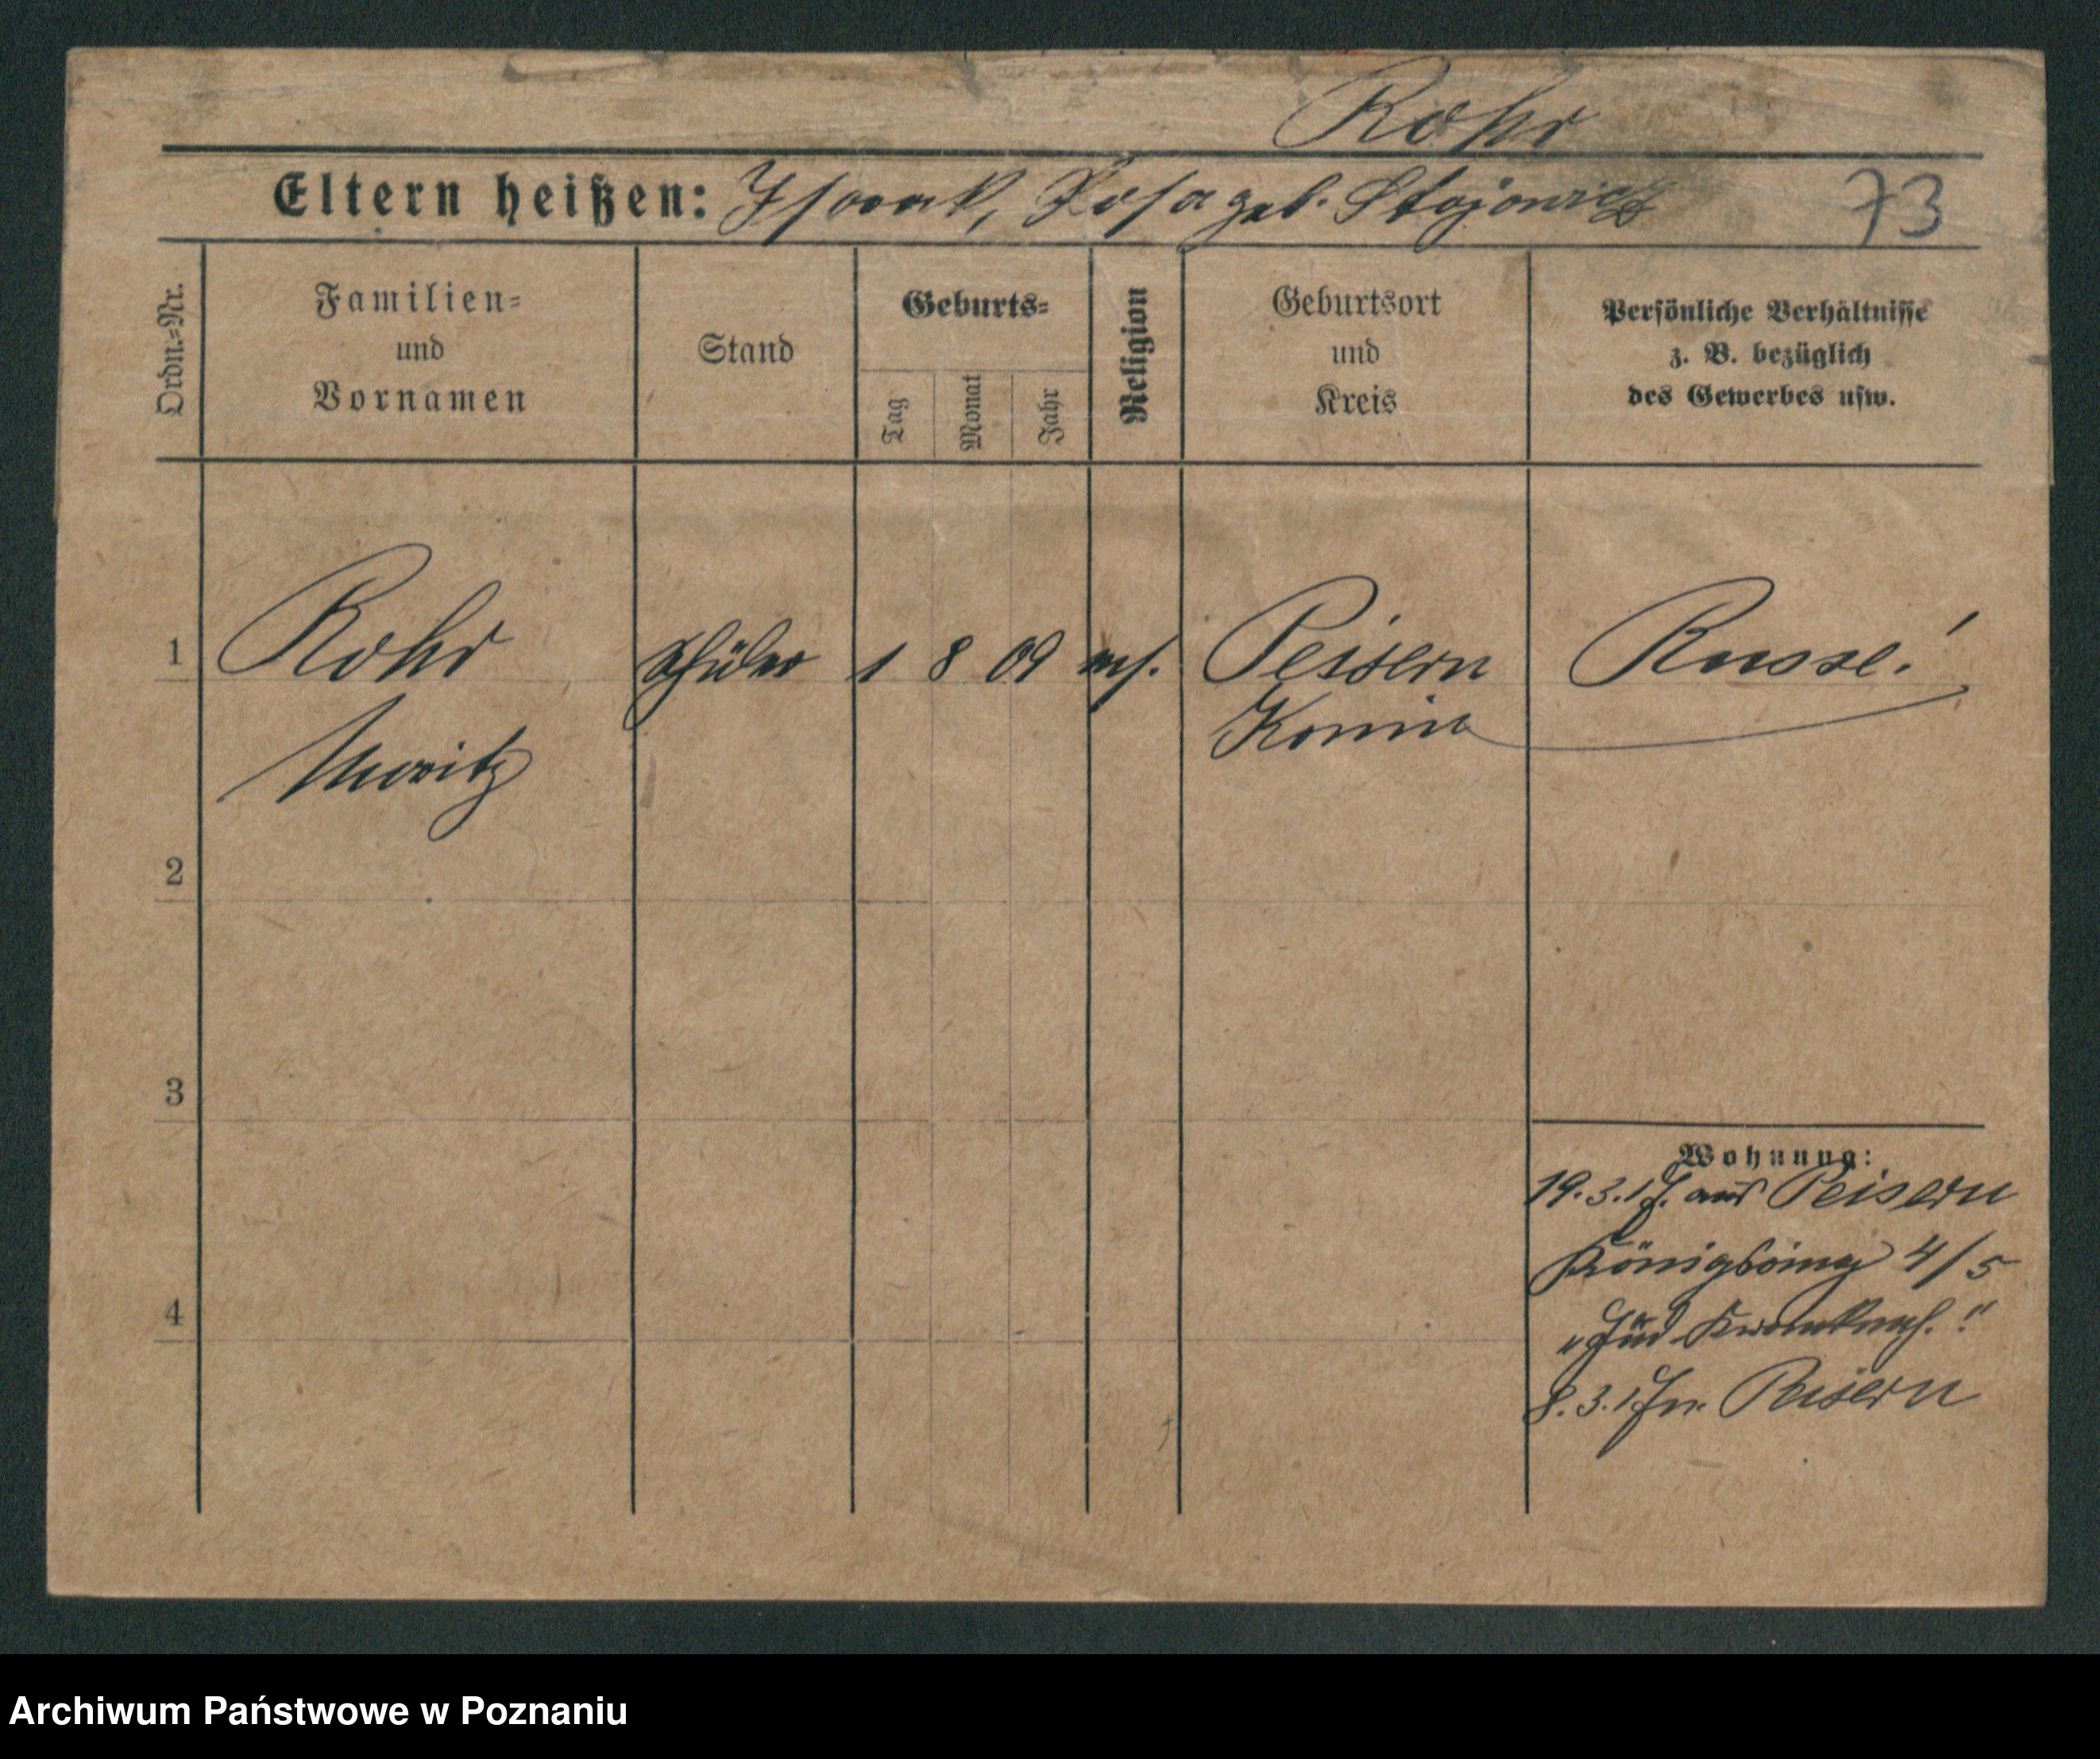 Rohr
Eltern heißen: Isaak, Rosa geb. Stajowicz 73
Ordn.=Nr.
Familien=
und
Vornamen
Stand
Geburts=
Tag
Monat
Jahr
Religion
Geburtsort
und
Kreis
Persönliche Verhältnisse
z. B. bezüglich
des Gewerbes usw.
1 Rohr Schüler 1 8 09 mos. Peisern Russe!
Moritz Konin
2
3
4
Wohnung:
19.3.17. aus Peisern
Königsring 4/5
"Jüd. Krankenh."
8.3.17 n. Peisern
Archiwum Państwowe w Poznaniu